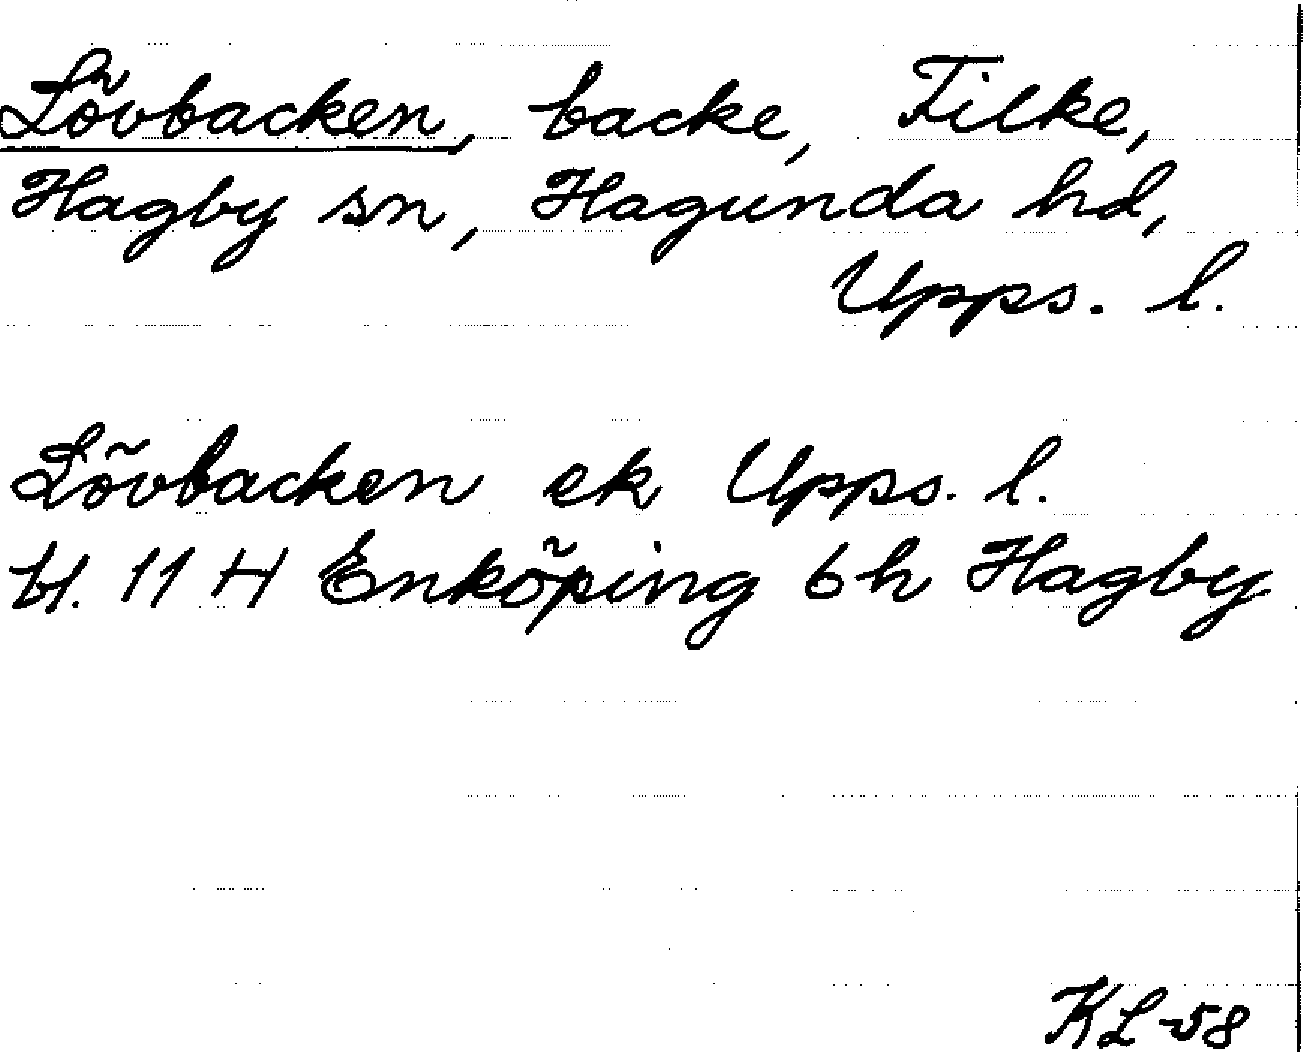 Lövbacken, backe, Filke,
Hagby sn, Hagunda hd,
Upps. l.
Lövbacken ek Upps. l.
11 H Enköping 6h Hagby
KL-58